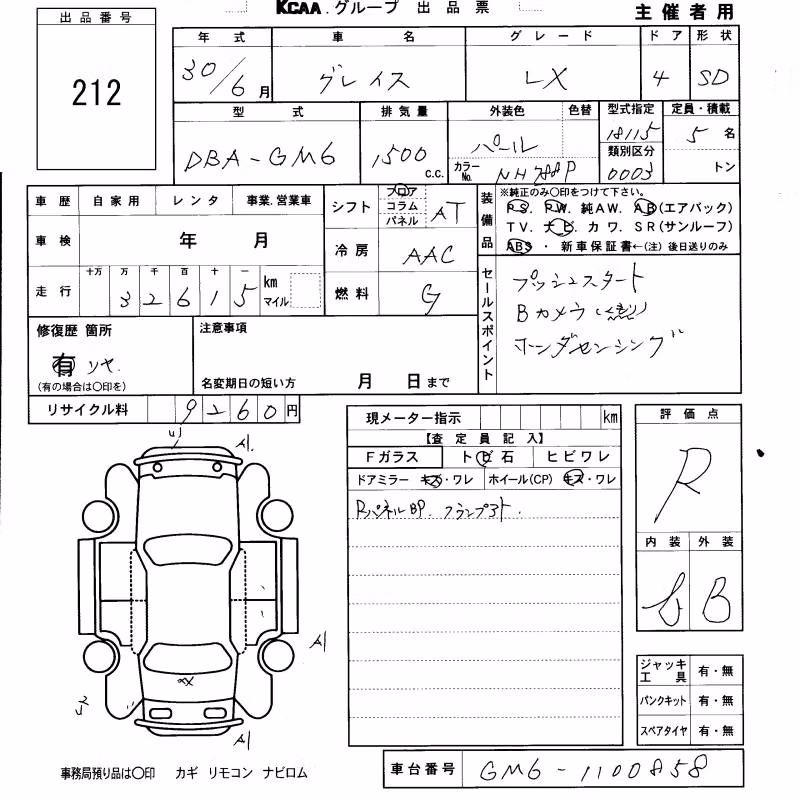 KCAA グループ 出品票
主催者用
出品番号
212
年式 車名 グレード ドア 形状
30/6月 グレイス LX 4 SD
型式 排気量 外装色 色替 型式指定 定員・積載
DBA-GM6 1500 c.c. パール 18115 5名
カラーNo. NH788P 類別区分 0003 トン
車歴 自家用 レンタ 事業.営業車
車検 年 月
走行 十万 万 千 百 十 一
32615 km マイル
シフト フロア コラム パネル AT
冷房 AAC
燃料 G
装備品 ※純正のみ○印をつけて下さい。
PS. PW. 純AW. AB(エアバック)
TV. ナビ カワ. SR(サンルーフ)
ABS ・ 新車保証書←(注) 後日送りのみ
セールスポイント
プッシュスタート
Bカメラ
ホンダセンシング
修復歴 箇所
有 リヤ.
(有の場合は○印を)
注意事項
名変期日の短い方 月 日まで
リサイクル料 9260円
現メーター指示 km
【査定員記入】
Fガラス トビ石 ヒビワレ
ドアミラー キズ・ワレ ホイール(CP) キズ・ワレ
RパネルBP.
評価点
R
内装 外装
B
A1
A1
A1
ジャッキ工具 有・無
パンクキット 有・無
スペアタイヤ 有・無
事務局預り品は○印 カギ リモコン ナビロム
車台番号 GM6-1100858